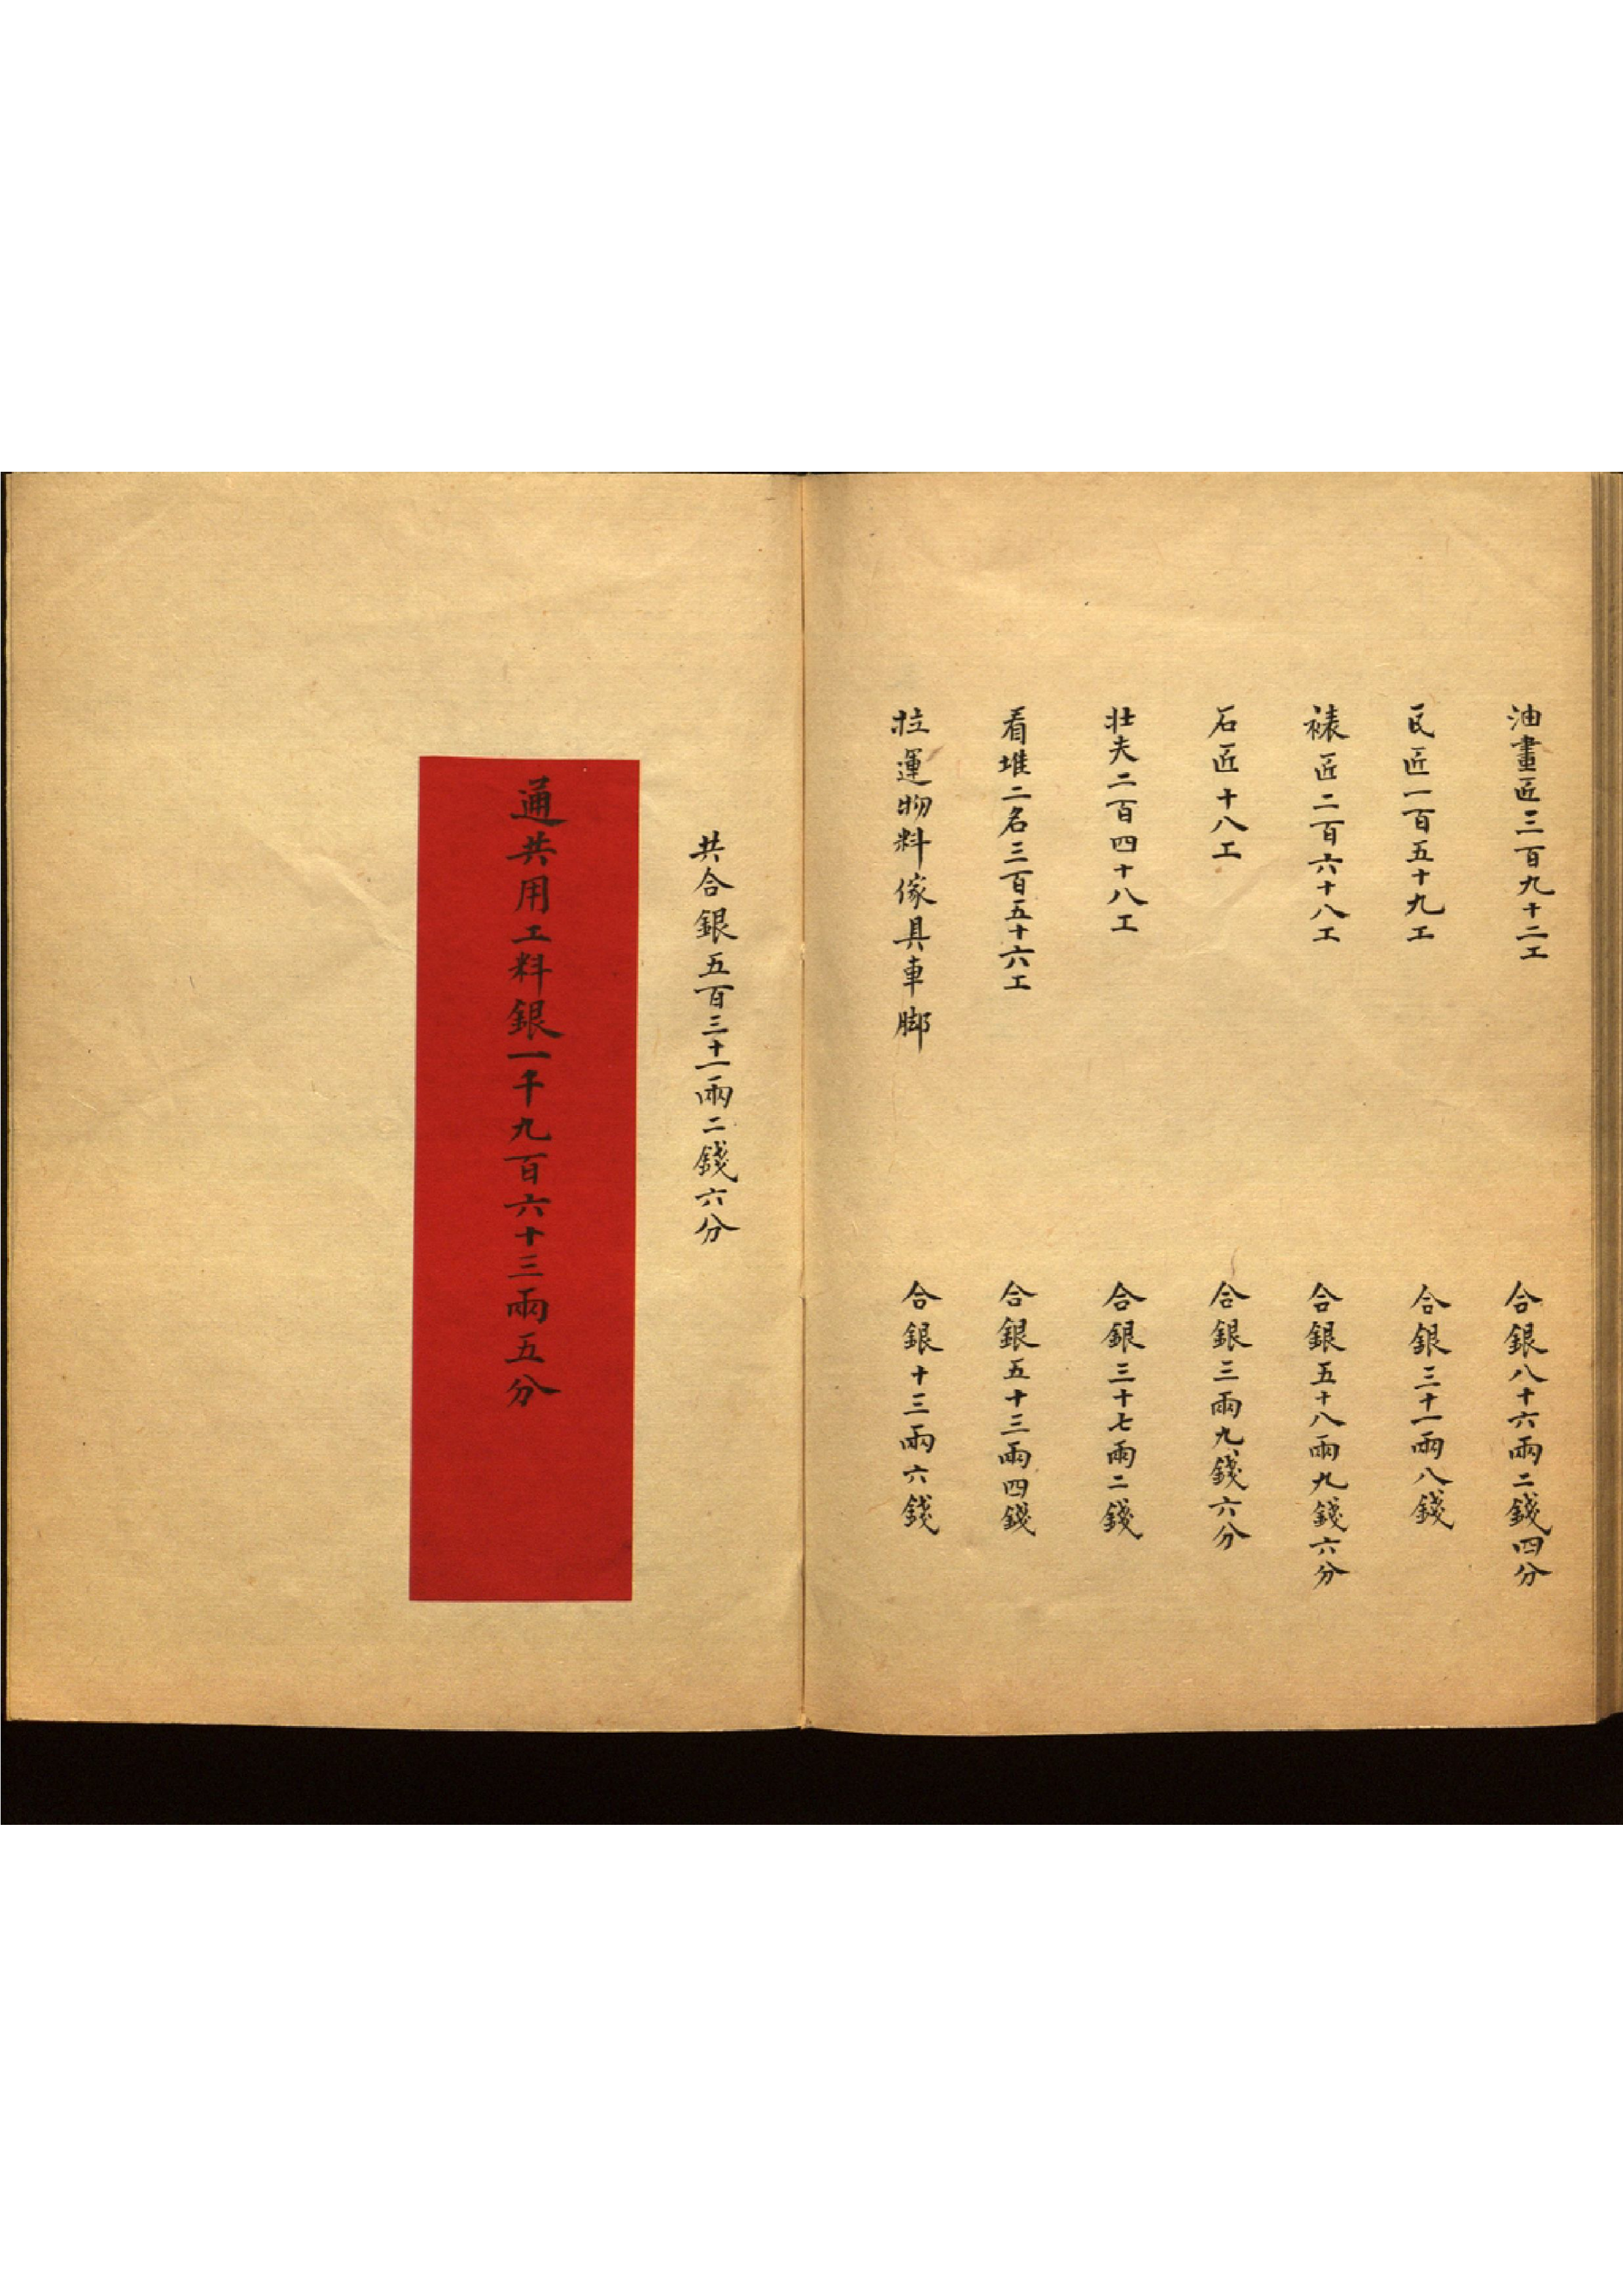 油畫匠三百九十二工 合銀八十六兩二錢四分
瓦匠一百五十九工 合銀三十一兩八錢
裱匠二百六十八工 合銀五十八兩九錢六分
石匠十八工 合銀三兩九錢六分
壯夫二百四十八工 合銀三十七兩二錢
看堆二名三百五十六工 合銀五十三兩四錢
拉運物料傢具車脚 合銀十三兩六錢
共合銀五百三十一兩二錢六分
通共用工料銀一千九百六十三兩五分